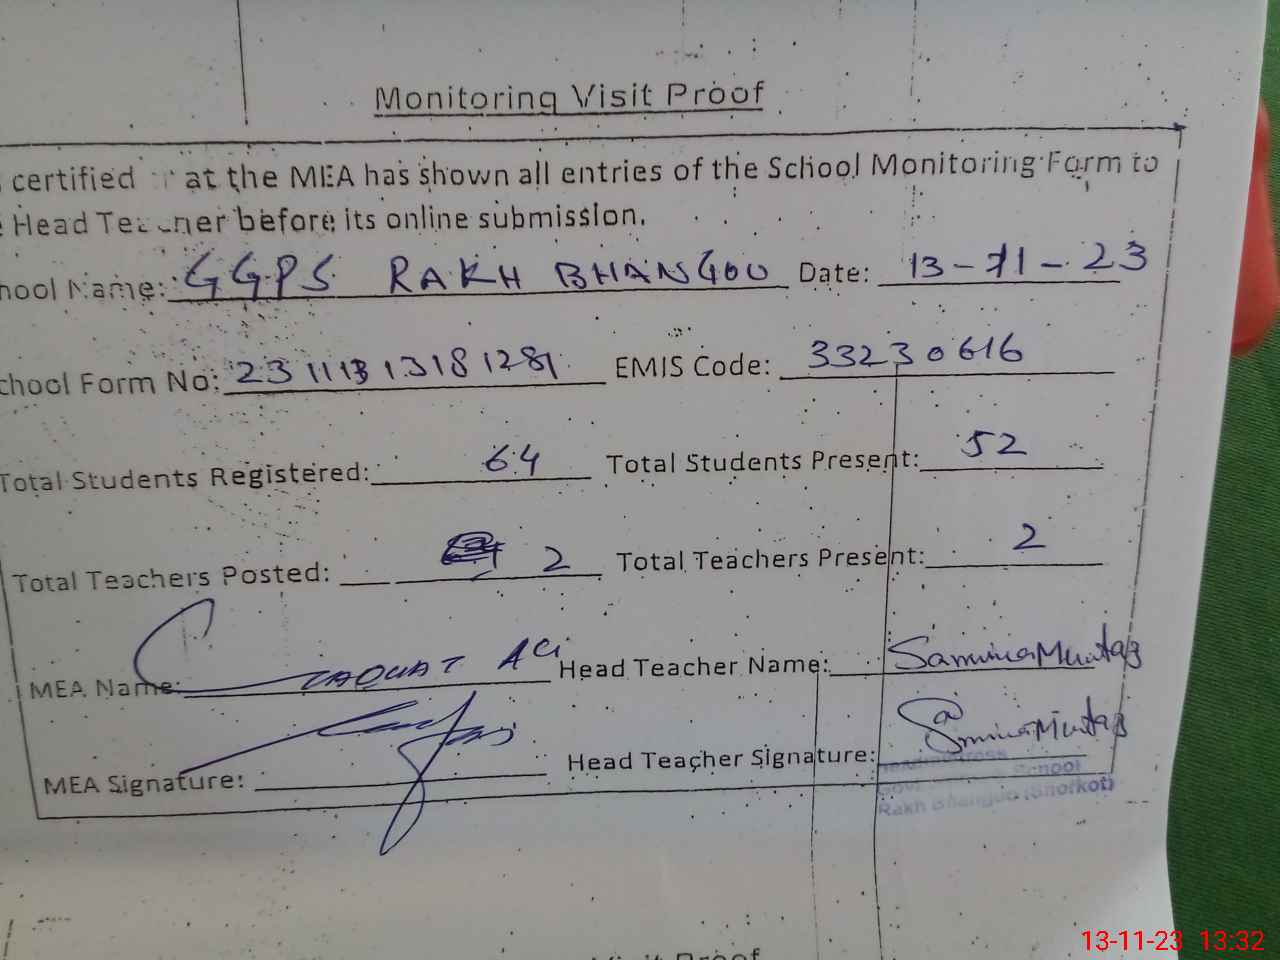 Monitoring Visit Proof
certified at the MEA has shown all entries of the School Monitoring Form to
Head Teacher before its online submission.
hool Name: GGPS RAKH BHANGOO Date: 13-11-23
chool Form No: 23111313181281 EMIS Code: 33230616
Total Students Registered: 64 Total Students Present: 52
Total Teachers Posted: 2 Total Teachers Present: 2
MEA Name: ALI Head Teacher Name: Samina Mumtaz
MEA Signature: Head Teacher Signature: Samina Mumtaz
Headmistress
School
Rakh Bhangoo (Shorkot)
Visit Proof
13-11-23 13:32